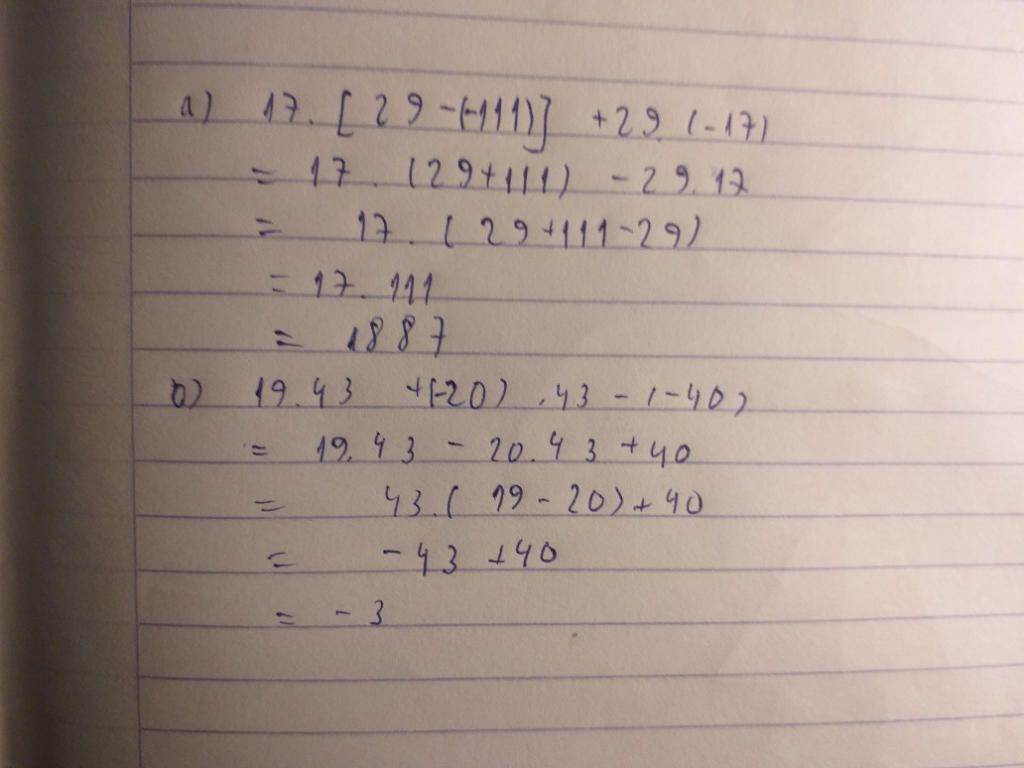 a) 17. [29-(-111)] +29.(-17)
= 17. (29+111) - 29.17
= 17. (29+111-29)
= 17. 111
= 1887
b) 19.43 +(-20) .43 - (-40)
= 19.43 - 20.43 +40
= 43.( 19 - 20) + 40
= - 43 +40
= - 3